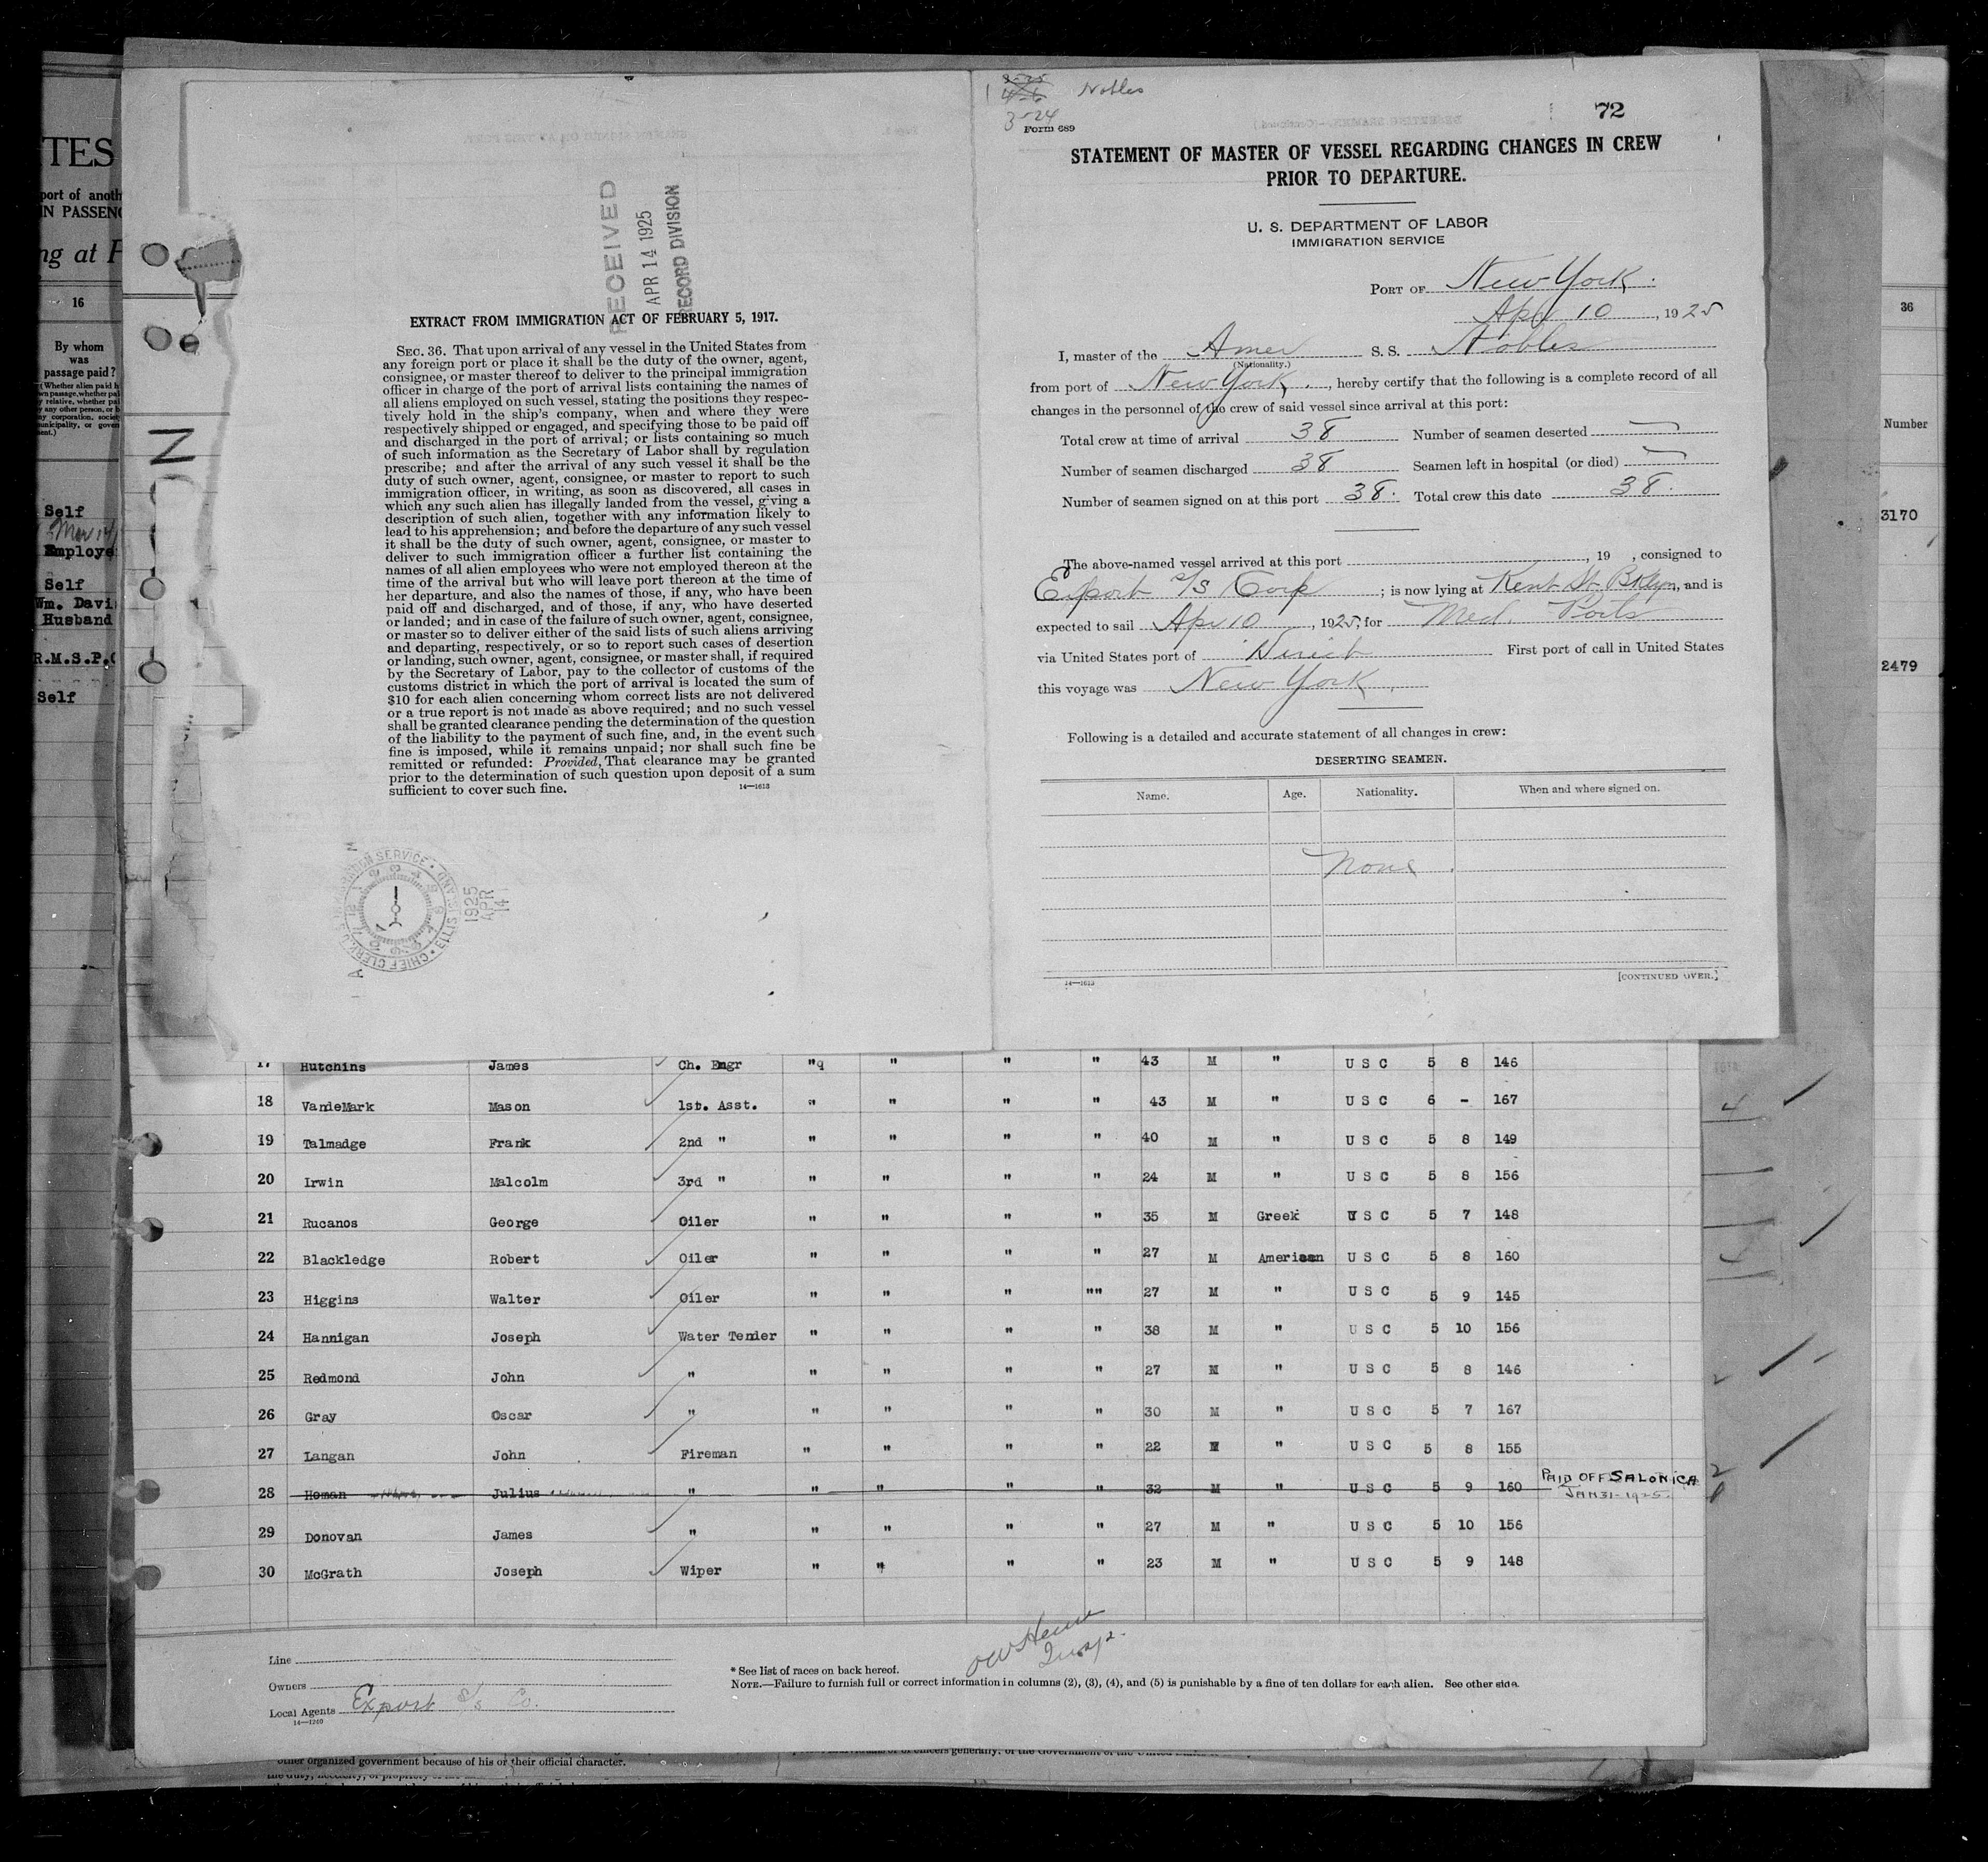 TES
port of anoth
IN PASSENG
ng at P
16
By whom
was
passage paid?
Self
Employe
Self
Wm. Davi
Husband
R.M.S.P.C
Self
ON
RECEIVED
APR 14 1925
RECORD DIVISION
EXTRACT FROM IMMIGRATION ACT OF FEBRUARY 5, 1917.
SEC. 36. That upon arrival of any vessel in the United States from
any foreign port or place it shall be the duty of the owner, agent,
consignee, or master thereof to deliver to the principal immigration
officer in charge of the port of arrival lists containing the names of
all aliens employed on such vessel, stating the positions they respec-
tively hold in the ship's company, when and where they were
respectively shipped or engaged, and specifying those to be paid off
and discharged in the port of arrival; or lists containing so much
of such information as the Secretary of Labor shall by regulation
prescribe; and after the arrival of any such vessel it shall be the
duty of such owner, agent, consignee, or master to report to such
immigration officer, in writing, as soon as discovered, all cases in
which any such alien has illegally landed from the vessel, giving a
description of such alien, together with any information likely to
lead to his apprehension; and before the departure of any such vessel
it shall be the duty of such owner, agent, consignee, or master to
deliver to such immigration officer a further list containing the
names of all alien employees who were not employed thereon at the
time of the arrival but who will leave port thereon at the time of
her departure, and also the names of those, if any, who have been
paid off and discharged, and of those, if any, who have deserted
or landed; and in case of the failure of such owner, agent, consignee,
or master so to deliver either of the said lists of such aliens arriving
and departing, respectively, or so to report such cases of desertion
or landing, such owner, agent, consignee, or master shall, if required
by the Secretary of Labor, pay to the collector of customs of the
customs district in which the port of arrival is located the sum of
$10 for each alien concerning whom correct lists are not delivered
or a true report is not made as above required; and no such vessel
shall be granted clearance pending the determination of the question
of the liability to the payment of such fine, and, in the event such
fine is imposed, while it remains unpaid; nor shall such fine be
remitted or refunded: Provided, That clearance may be granted
prior to the determination of such question upon deposit of a sum
sufficient to cover such fine.
14—1613
CHIEF CLERK U.S. IMMIGRATION SERVICE ELLIS ISLAND
1925
APR
14
Nobles
3-24
72
Form 689
STATEMENT OF MASTER OF VESSEL REGARDING CHANGES IN CREW
PRIOR TO DEPARTURE.
U. S. DEPARTMENT OF LABOR
IMMIGRATION SERVICE
PORT OF New York.
Apr 10, 1925
I, master of the Amer S. S. Nobles
(Nationality.)
from port of New York., hereby certify that the following is a complete record of all
changes in the personnel of the crew of said vessel since arrival at this port:
Total crew at time of arrival 38 Number of seamen deserted
Number of seamen discharged 38 Seamen left in hospital (or died)
Number of seamen signed on at this port 38. Total crew this date 38.
The above-named vessel arrived at this port , 19 , consigned to
Export S/S Corp ; is now lying at Kent St. Bklyn, and is
expected to sail Apr 10, 1925, for Med. Ports
via United States port of Direct First port of call in United States
this voyage was New York.
Following is a detailed and accurate statement of all changes in crew:
DESERTING SEAMEN.
Name. Age. Nationality. When and where signed on.
None.
14—1613 [CONTINUED OVER.]
36
Number
3170
2479
17 Hutchins James Ch. Engr "q " " " 43 M " U S C 5 8 146
18 VandeMark Mason 1st. Asst. " " " " 43 M " U S C 6 - 167
19 Talmadge Frank 2nd " " " " " 40 M " U S C 5 8 149
20 Irwin Malcolm 3rd " " " " " 24 M " U S C 5 8 156
21 Rucanos George Oiler " " " " 35 M Greek U S C 5 7 148
22 Blackledge Robert Oiler " " " " 27 M American U S C 5 8 160
23 Higgins Walter Oiler " " " "" 27 M " U S C 5 9 145
24 Hannigan Joseph Water Tender " " " " 38 M " U S C 5 10 156
25 Redmond John " " " " " 27 M " U S C 5 8 146
26 Gray Oscar " " " " " 30 M " U S C 5 7 167
27 Langan John Fireman " " " " 22 M " U S C 5 8 155
28 Homan Julius " " " " " 32 M " U S C 5 9 160 PAID OFF SALONICA
JAN 31-1925.
29 Donovan James " " " " " 27 M " U S C 5 10 156
30 McGrath Joseph Wiper " " " " 23 M " U S C 5 9 148
Line
Owners
Local Agents Export S/S Co.
14—1240
Insp.
* See list of races on back hereof.
NOTE.—Failure to furnish full or correct information in columns (2), (3), (4), and (5) is punishable by a fine of ten dollars for each alien. See other side.
other organized government because of his or their official character.